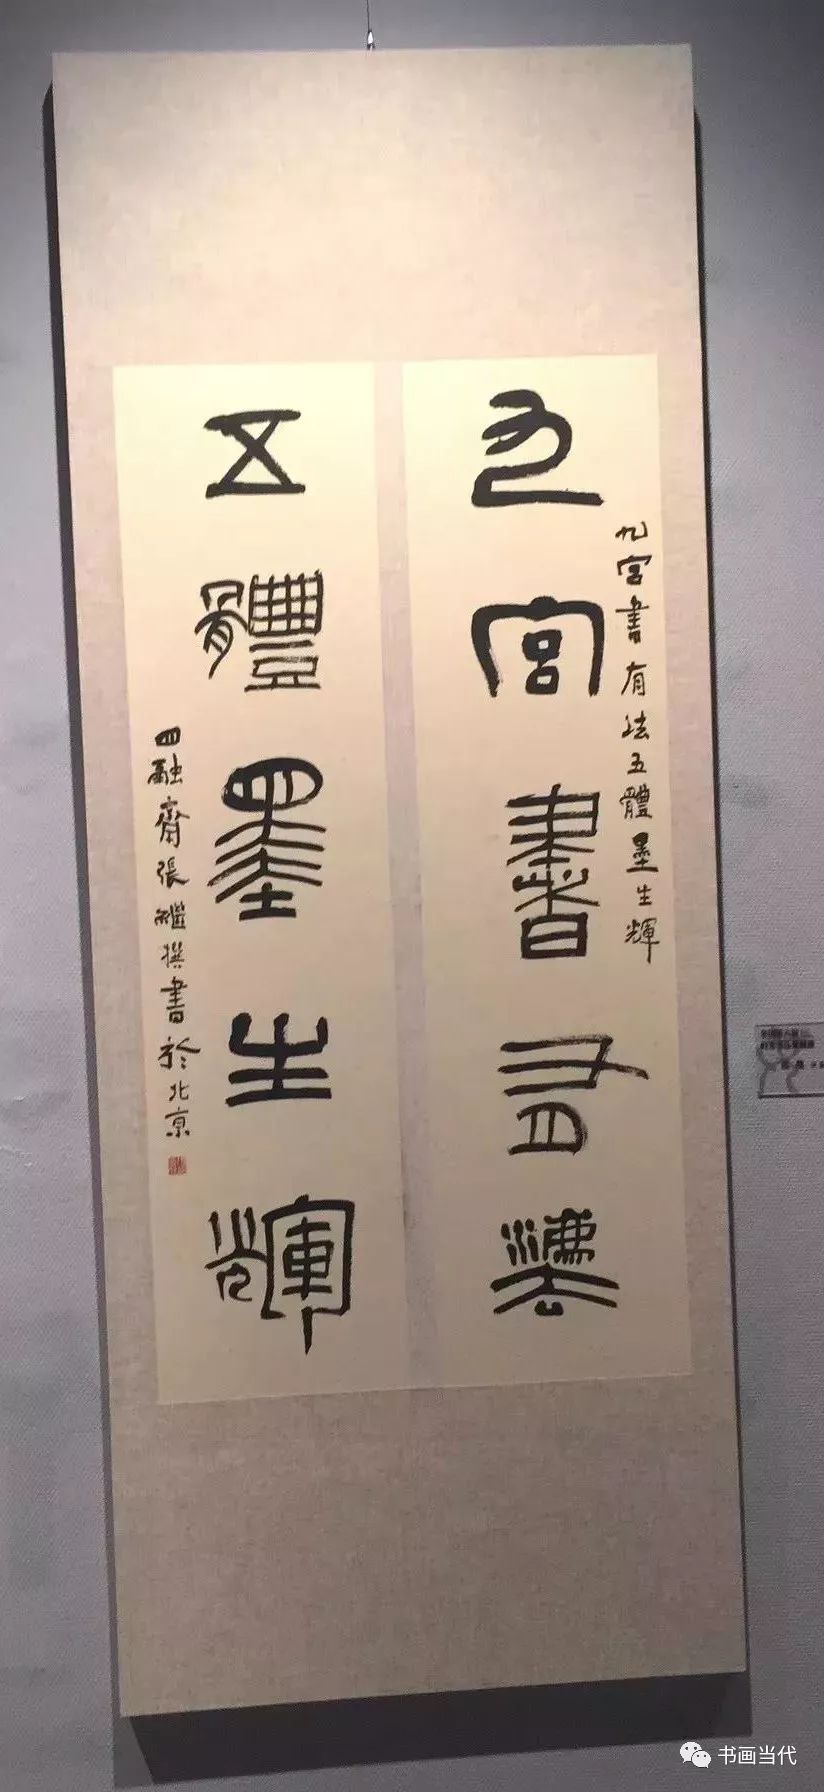 九宮書有灋
九宮書有法五體墨生輝
五體墨生輝
四融齋張繼撰書於北京
书画当代